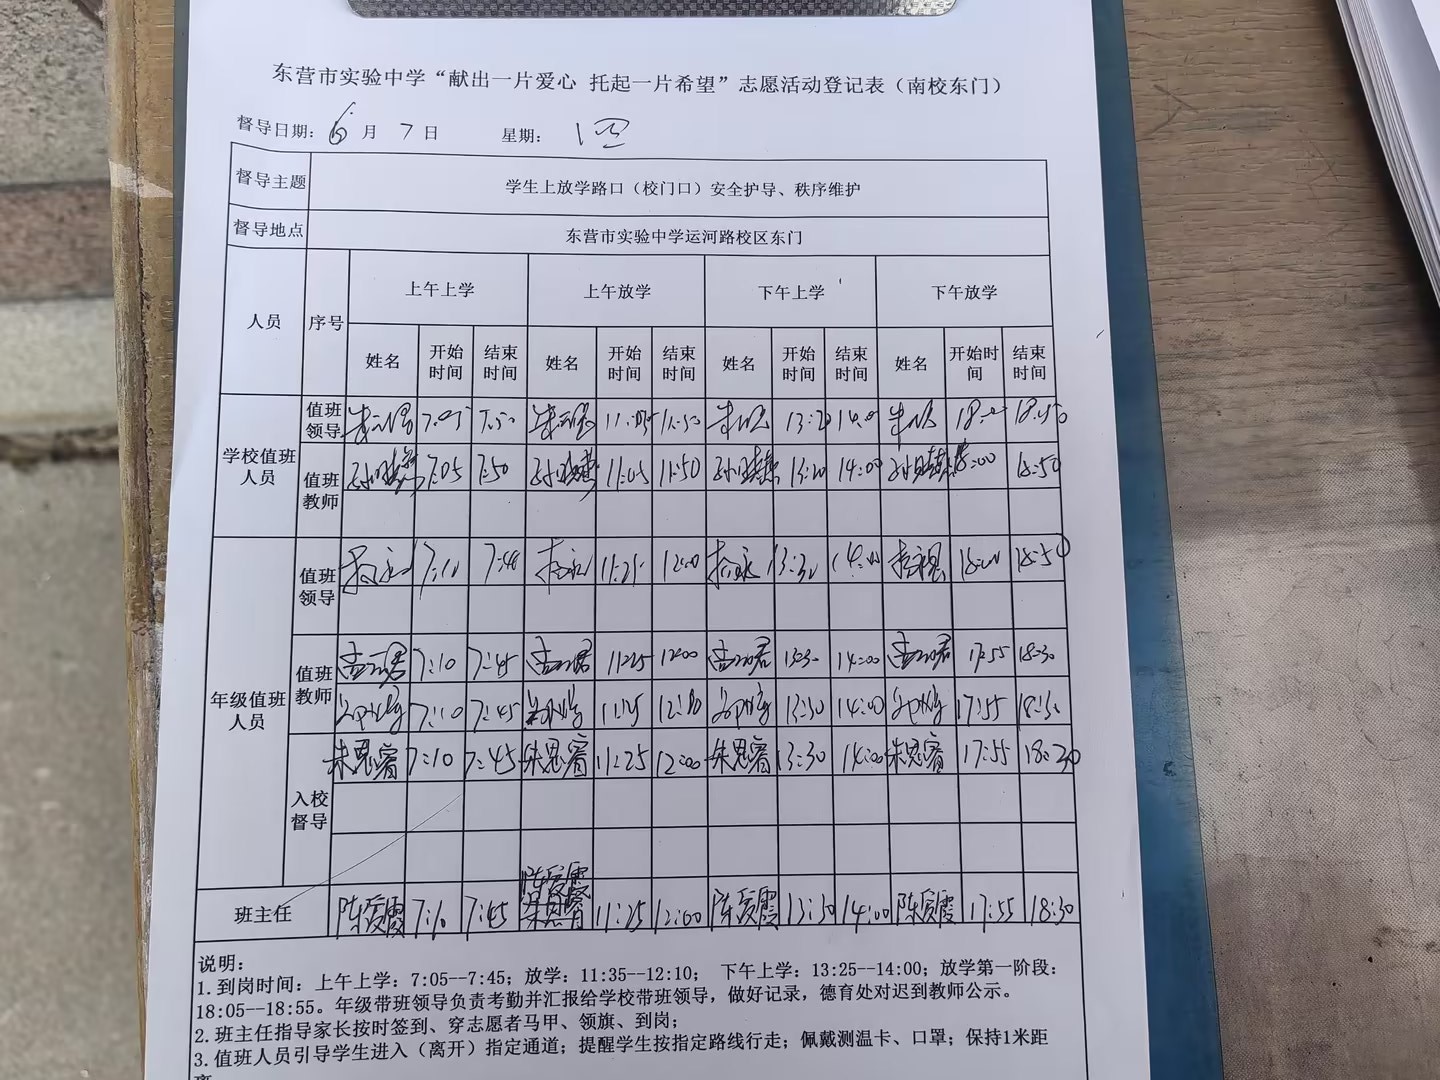 东营市实验中学“献出一片爱心 托起一片希望”志愿活动登记表（南校东门）
督导日期：6月7日 星期：四
督导主题 学生上放学路口（校门口）安全护导、秩序维护
督导地点 东营市实验中学运河路校区东门
人员 序号 上午上学 上午放学 下午上学 下午放学
姓名 开始时间 结束时间 姓名 开始时间 结束时间 姓名 开始时间 结束时间 姓名 开始时间 结束时间
学校值班人员 值班领导 7:05 7:50 11:05 11:50 13:20 14:00 18:00 18:50
值班教师 7:05 7:50 11:05 11:50 13:20 14:00 18:00 18:50
年级值班人员 值班领导 7:10 7:40 11:25 12:00 13:30 14:00 18:00 18:50
值班教师 7:10 7:45 11:25 12:00 13:30 14:00 17:55 18:30
7:10 7:45 11:25 13:30 14:00 17:55 18:30
入校督导 朱思睿 7:10 7:45 朱思睿 11:25 12:00 朱思睿 13:30 14:00 朱思睿 17:55 18:30
班主任 陈爱霞 7:10 7:45 陈爱霞 11:25 12:00 陈爱霞 13:30 14:00 陈爱霞 17:55 18:30
说明：
1.到岗时间：上午上学：7:05--7:45；放学：11:35--12:10； 下午上学：13:25--14:00；放学第一阶段：
18:05--18:55。年级带班领导负责考勤并汇报给学校带班领导，做好记录，德育处对迟到教师公示。
2.班主任指导家长按时签到、穿志愿者马甲、领旗、到岗；
3.值班人员引导学生进入（离开）指定通道；提醒学生按指定路线行走；佩戴测温卡、口罩；保持1米距